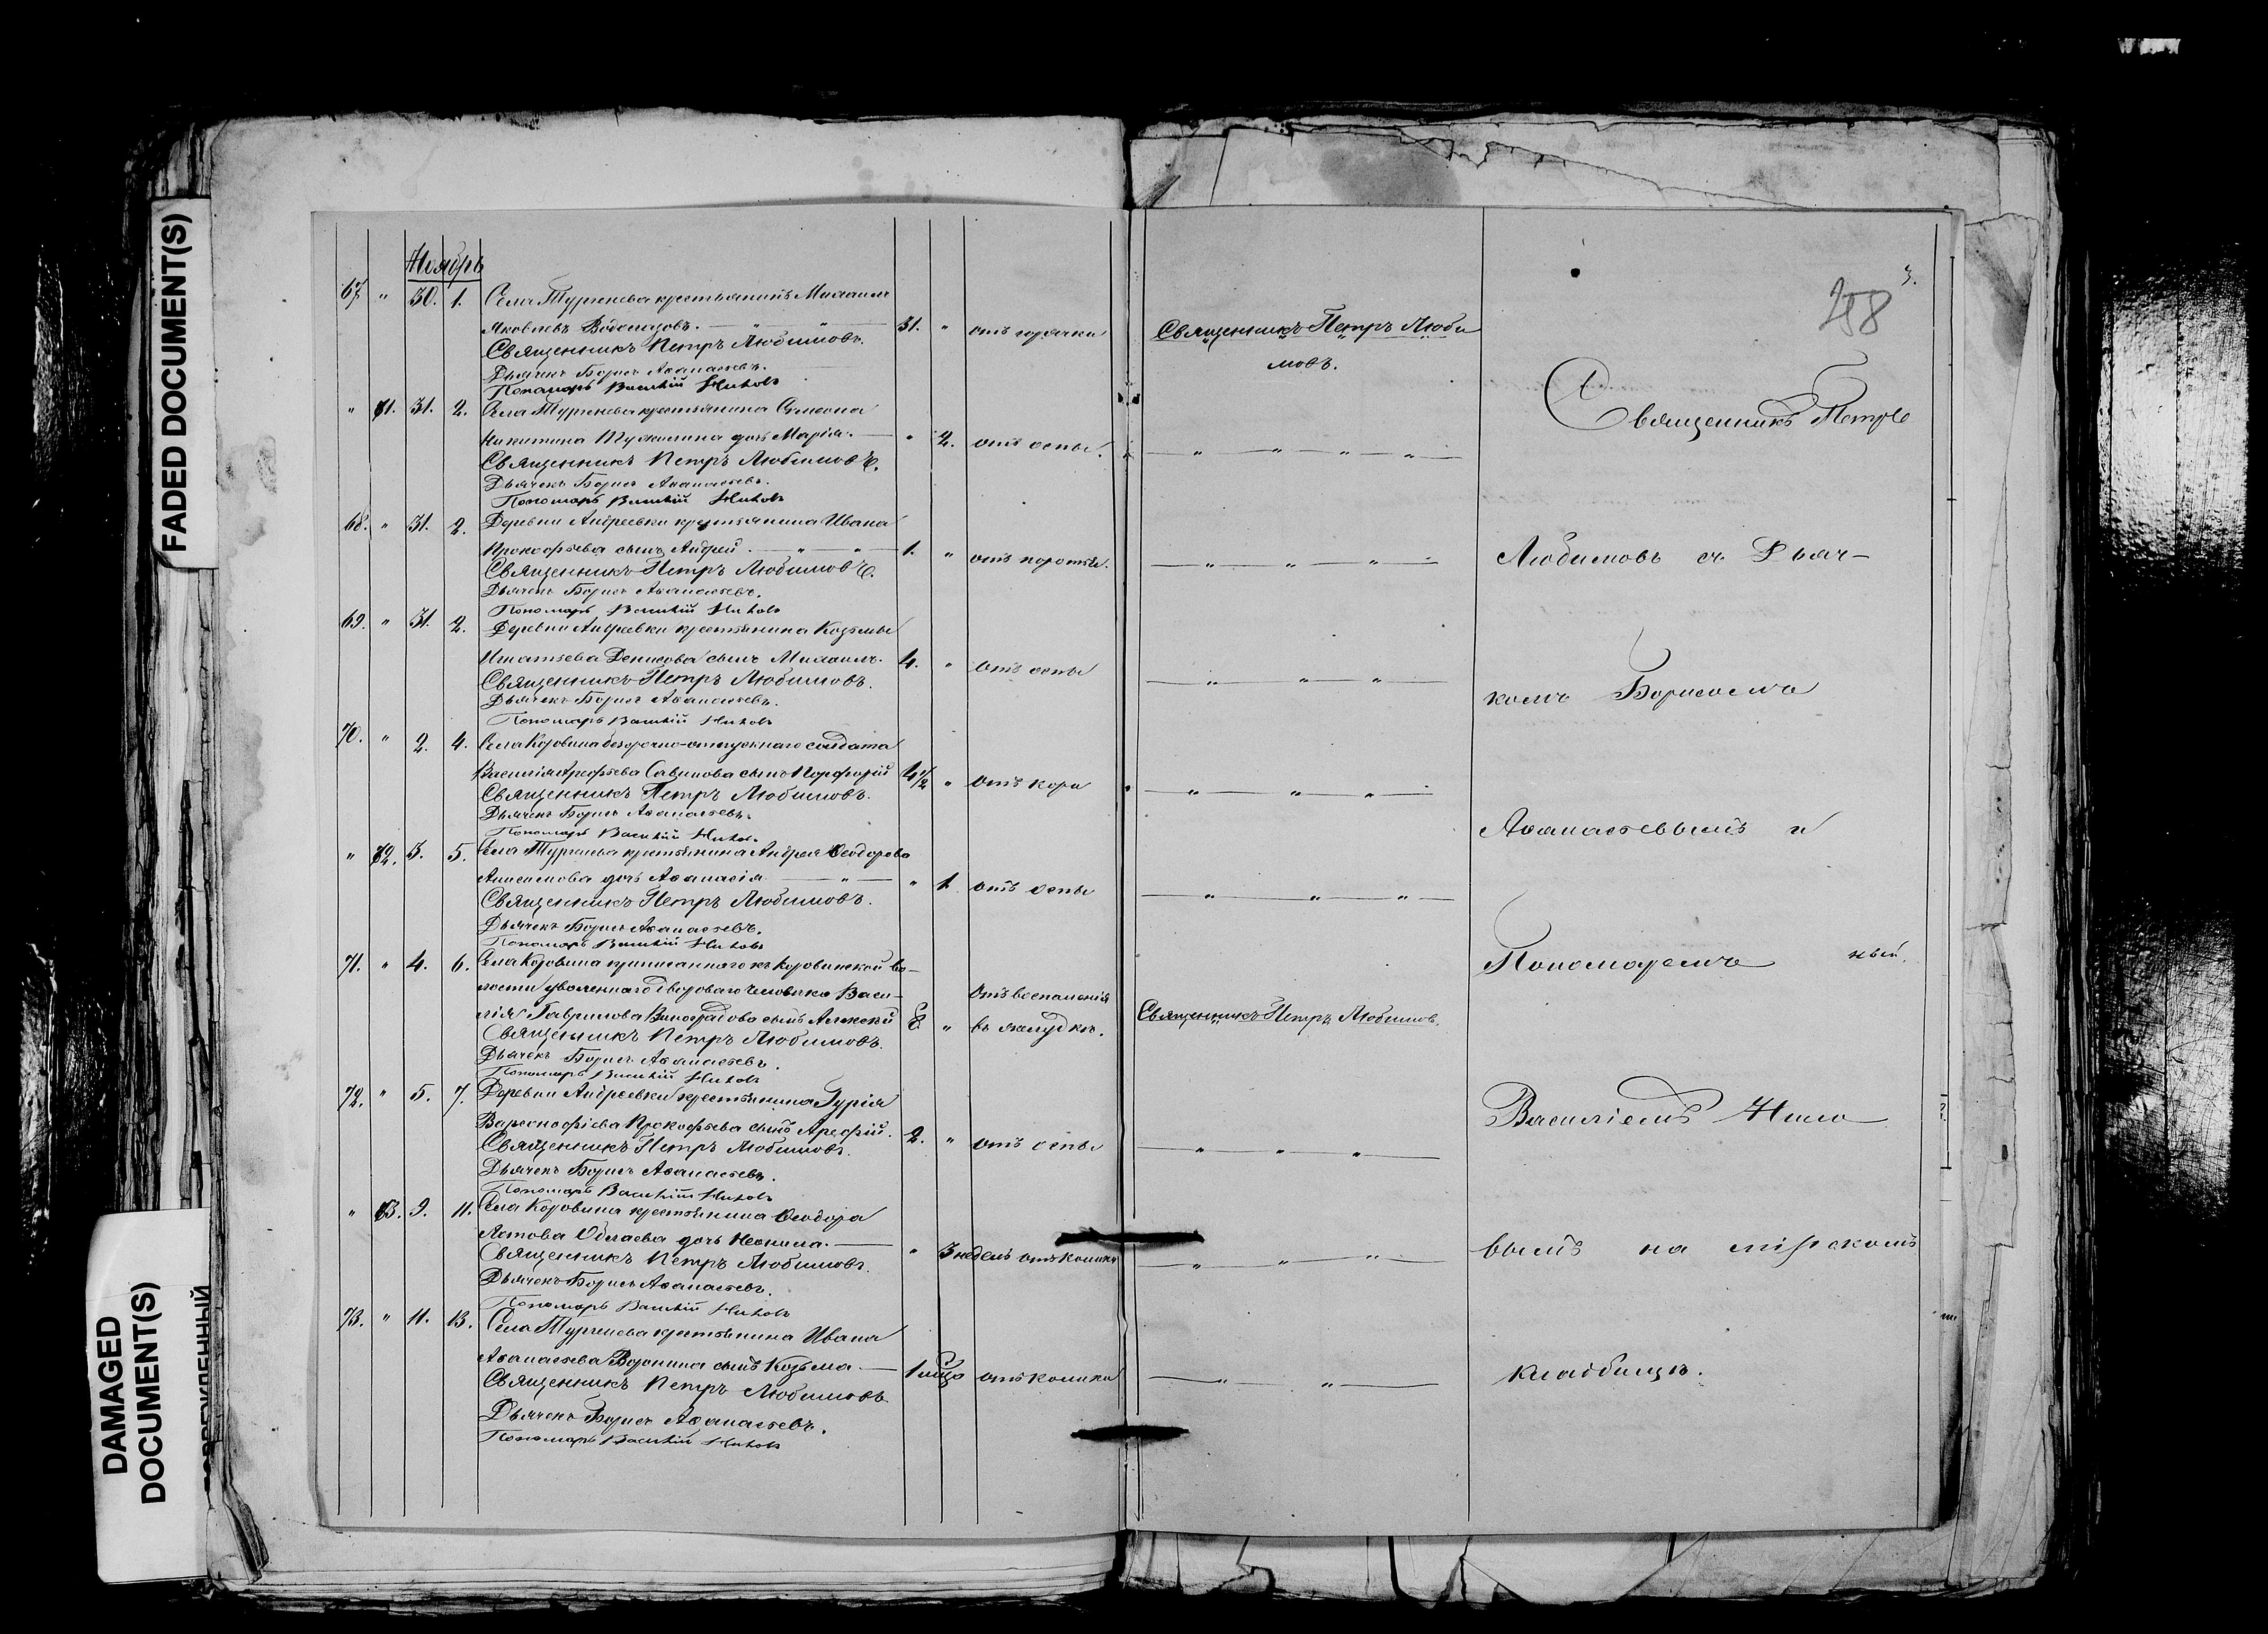 FADED DOCUMENT(S)
DAMAGED
DOCUMENT(S)
Ноябрь
67. " 30. 1. Села Тургенева крестьянинъ Михаилъ
Яковлевъ — " — " — 31. " отъ горячки
Священникъ Петръ Любимовъ.
Дьячекъ Борисъ Аѳанасьевъ.
Пономарь Василій
" 61. 31. 2. Села Тургенева крестьянина Симеона
Никитина дочь Марія. — " 2. отъ оспы.
Священникъ Петръ Любимовъ.
Дьячекъ Борисъ Аѳанасьевъ.
Пономарь Василій
68. " 31. 2. Деревни Андреевки крестьянина Ивана
Прокофьева сынъ Андрей. — " — " — 1. "
Священникъ Петръ Любимовъ.
Дьячекъ Борисъ Аѳанасьевъ.
Пономарь Василій
69. " 31. 2. Деревни Андреевки крестьянина Козьмы
Игнатьева Денисова сынъ Михаилъ. 4. " отъ оспы
Священникъ Петръ Любимовъ.
Дьячекъ Борисъ Аѳанасьевъ.
Пономарь Василій
70. " 2. 4. Села Коровина безсрочно-отпускнаго солдата
Василія Арефьева Савинова сынъ Порфирій 4 1/2 " отъ кори
Священникъ Петръ Любимовъ.
Дьячекъ Борисъ Аѳанасьевъ.
Пономарь Василій
" 62. 3. 5. Села Тургенева крестьянина Андрея Ѳеодорова
Анисимова дочь Аѳанасія — " — " 1. отъ оспы
Священникъ Петръ Любимовъ.
Дьячекъ Борисъ Аѳанасьевъ.
Пономарь Василій
71. " 4. 6. Села Коровина приписаннаго къ Коровинской во-
лости уволеннаго двороваго человѣка Васи-
лія Гаврилова Виноградова сынъ Алексѣй 8. " Отъ воспаленія
въ желудкѣ.
Священникъ Петръ Любимовъ.
Дьячекъ Борисъ Аѳанасьевъ.
Пономарь Василій
72. " 5. 7. Деревни Андреевки крестьянина Гурія
Прокофьева сынъ Арефій. 2. " отъ оспы
Священникъ Петръ Любимовъ.
Дьячекъ Борисъ Аѳанасьевъ.
Пономарь Василій
" 63. 9. 11. Села Коровина крестьянина Ѳеодора
дочь Неонила. — " 3 недель отъ колики
Священникъ Петръ Любимовъ.
Дьячекъ Борисъ Аѳанасьевъ.
Пономарь Василій
73. " 11. 13. Села Тургенева крестьянина Ивана
Аѳанасьева Воронина сынъ Козьма — отъ колики
Священникъ Петръ Любимовъ
Дьячекъ Борисъ Аѳанасьевъ.
Пономарь Василій
3.
Священникъ Петръ Люби
мовъ.
— " — " — " — " —
— " — " — " —
— " — " — " —
— " — " — " —
— " — " — " —
Священникъ Петръ Любимовъ.
— " — " — " —
— " — " — " —
— " — " —
Священникъ Петръ
Любимовъ съ Дьяч-
комъ Борисомъ
Аѳанасьевымъ и
Пономаремъ
ный
Василіемъ
вымъ на мірскомъ
кладбищѣ.